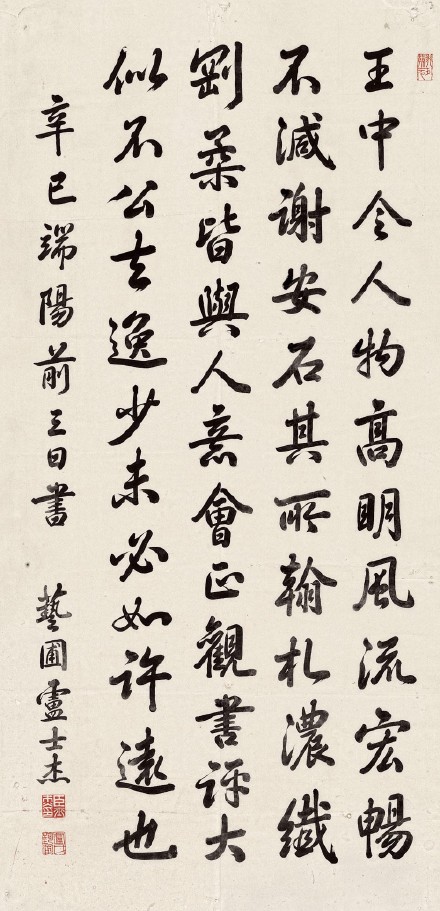 王中令人物高明風流宏暢
不減謝安石其所翰札濃纖
剛柔皆與人意會正觀書評大
似不公去逸少未必如許遠也
辛巳端陽前三日書 藝圃盧士杰